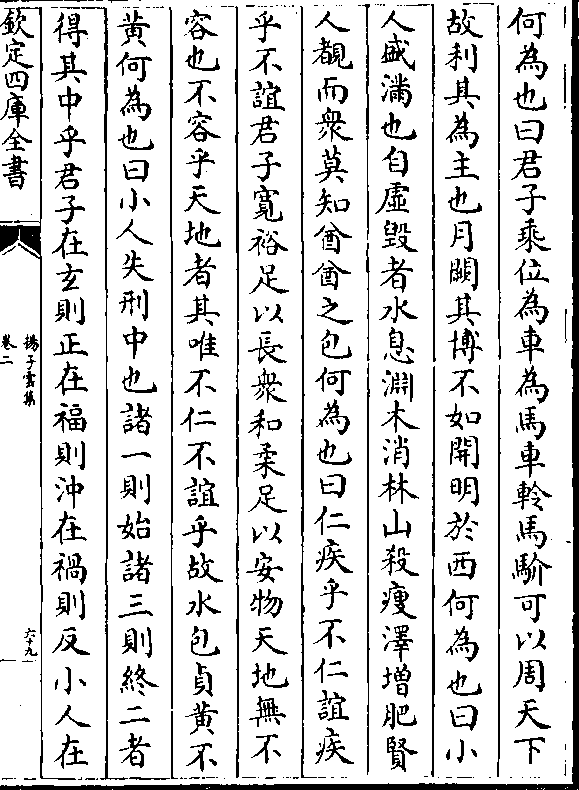 何為也曰君子乘位為車為馬車軨馬馸可以周天下
故利其為主也月闕其博不如開明於西何為也曰小
人盛滿也自虛毀者水息淵木消林山殺瘦澤増肥賢
人覩而衆莫知酋酋之包何為也曰仁疾乎不仁誼疾
乎不誼君子寛裕足以長衆和柔足以安物天地無不
容也不容乎天地者其唯不仁不誼乎故水包貞黄不
黄何為也曰小人失刑中也諸一則始諸三則終二者
得其中乎君子在玄則正在福則沖在禍則反小人在
欽定四庫全書
揚子雲集
卷二
六十九